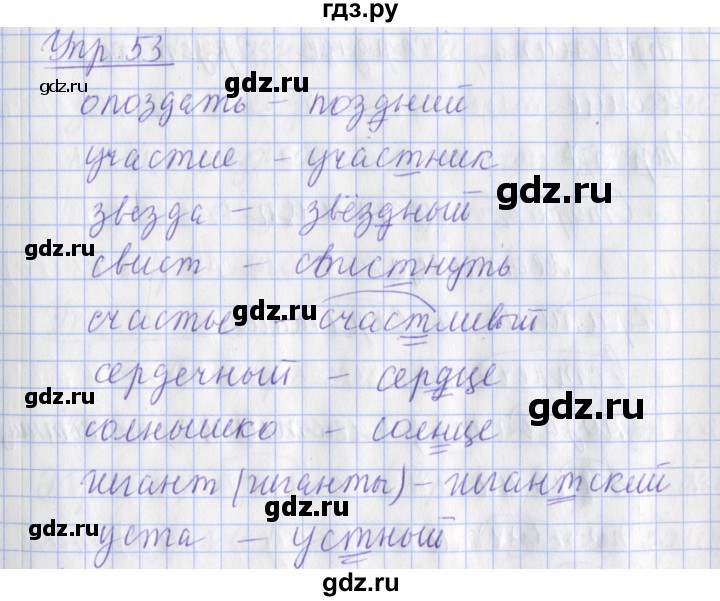 гдз.ру
Упр. 53
gdz.ru
gdz.ru
опоздать – поздний
участие – участник
gdz.ru
звезда – звёздный
gdz.ru
свист – свистнуть
gdz.ru
счастье – счастливый
сердечный – сердце
gdz.ru
gdz.ru
солнышко – солнце
гигант (гиганты) – гигантский
gdz.ru
gdz.ru
уста – устный
gdz.ru